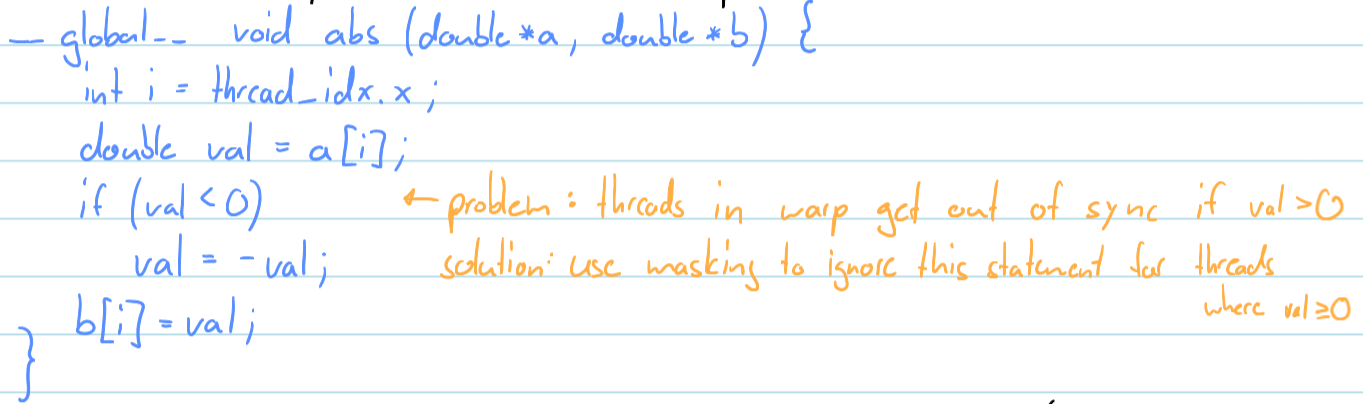 __global__ void abs (double *a, double *b) {
int i = thread_idx.x;
double val = a[i];
if (val < 0) ← problem: threads in warp get out of sync if val > 0
val = -val; solution: use masking to ignore this statement for threads
where val ≥ 0
b[i] = val;
}